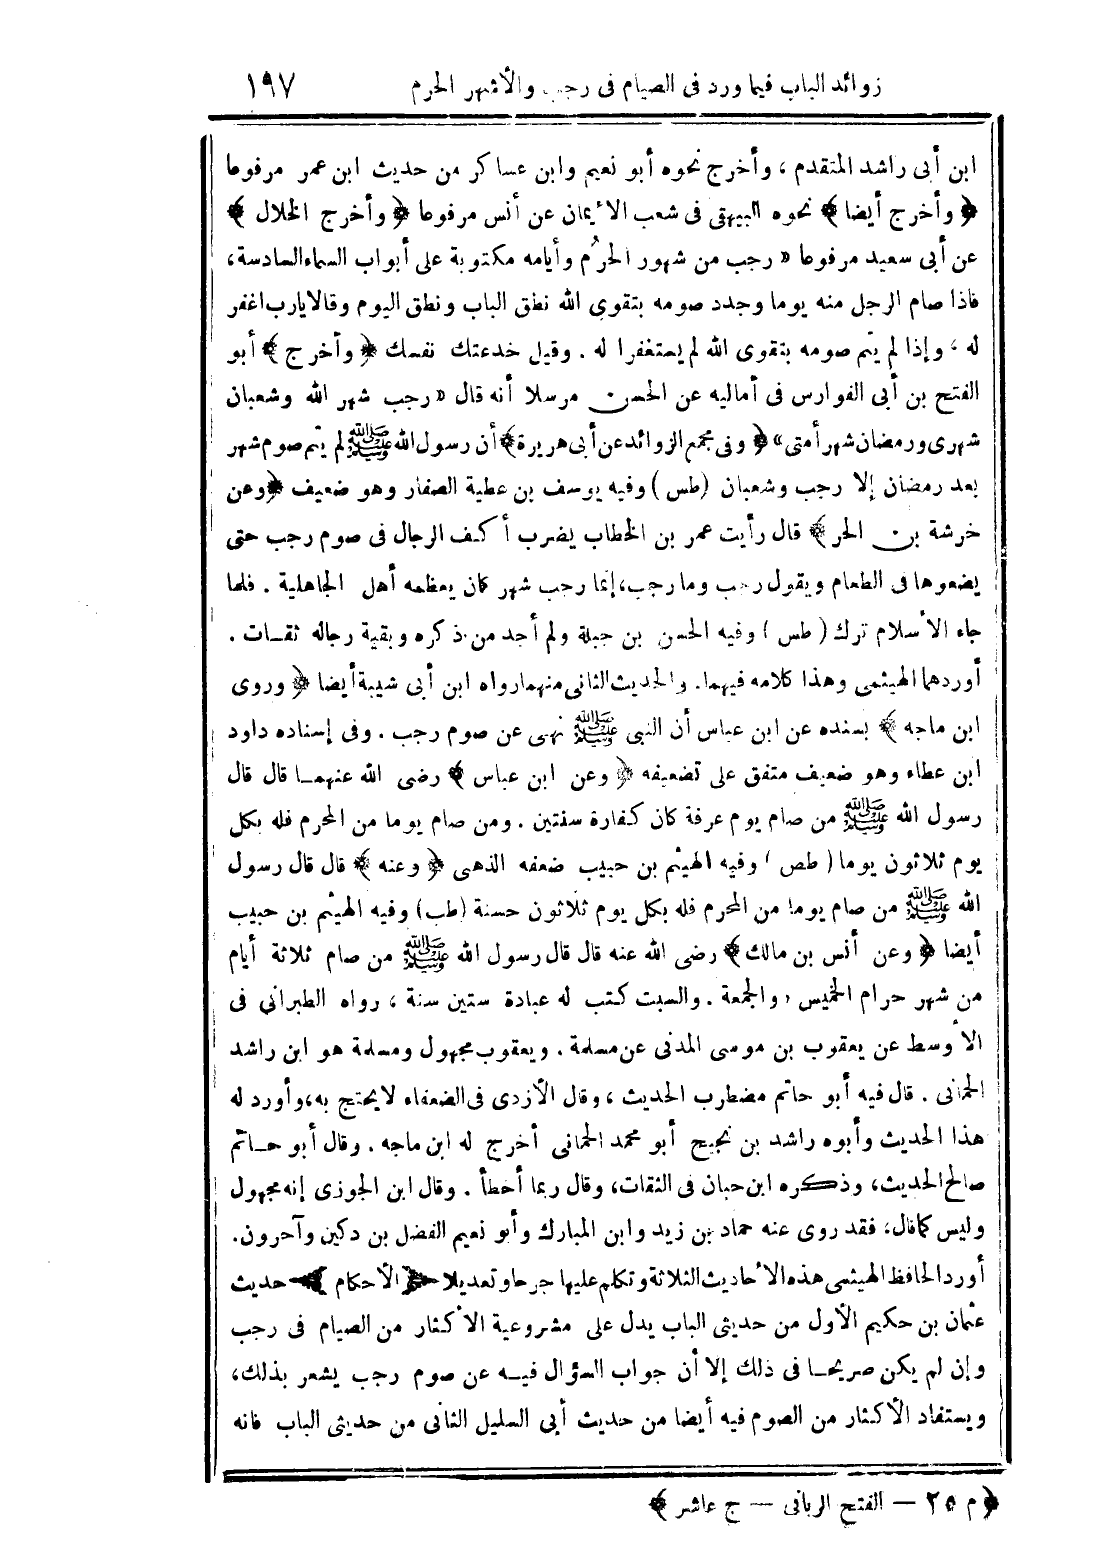 زوائد الباب فيما ورد فى الصيام فى رجب والأشهر الحرم ١٩٧
ابن أبى راشد المتقدم ، وأخرج نحوه أبو نعيم وابن عساكر من حديث ابن عمر مرفوعا
﴿ وأخرج أيضا ﴾ نحوه البيهقى فى شعب الأيمان عن أنس مرفوعا ﴿ وأخرج الخلال ﴾
عن أبى سعيد مرفوعا « رجب من شهور الحرُم وأيامه مكتوبة على أبواب السماء السادسة،
فاذا صام الرجل منه يوما وجدد صومه بتقوى الله نطق الباب ونطق اليوم وقالا يارب اغفر
له ، وإذا لم يتم صومه بتقوى الله لم يستغفرا له . وقيل خدعتك نفسك ﴿ وأخرج ﴾ أبو
الفتح بن أبى الفوارس فى أماليه عن الحسن مرسلا أنه قال « رجب شهر الله وشعبان
شهرى ورمضان شهر أمتى» ﴿ وفى مجمع الزوائد عن أبى هريرة ﴾ أن رسول الله ﷺ لم يتم صوم شهر
بعد رمضان إلا رجب وشعبان (طس) وفيه يوسف بن عطية الصفار وهو ضعيف ﴿ وعن
خرشة بن الحر ﴾ قال رأيت عمر بن الخطاب يضرب أكف الرجال فى صوم رجب حتى
يضعوها فى الطعام ويقول رجب وما رجب، إنما رجب شهر كان يعظمه أهل الجاهلية . فلما
جاء الأسلام ترك (طس) وفيه الحسن بن جبلة ولم أجد من ذكره وبقية رجاله ثقات .
أوردهما الهيثمى وهذا كلامه فيهما. والحديث الثانى منهما رواه ابن أبى شيبة أيضا ﴿ وروى
ابن ماجه ﴾ بسنده عن ابن عباس أن النبى ﷺ نهى عن صوم رجب . وفى إسناده داود
ابن عطاء وهو ضعيف متفق على تضعيفه ﴿ وعن ابن عباس ﴾ رضى الله عنهما قال قال
رسول الله ﷺ من صام يوم عرفة كان كفارة سنتين . ومن صام يوما من المحرم فله بكل
يوم ثلاثون يوما ( طص ) وفيه الهيثم بن حبيب ضعفه الذهبى ﴿ وعنه ﴾ قال قال رسول
الله ﷺ من صام يوما من المحرم فله بكل يوم ثلاثون حسنة (طب) وفيه الهيثم بن حبيب
أيضا ﴿ وعن أنس بن مالك ﴾ رضى الله عنه قال قال رسول الله ﷺ من صام ثلاثة أيام
من شهر حرام الخميس ، والجمعة . والسبت كتب له عبادة ستين سنة ، رواه الطبرانى فى
الأوسط عن يعقوب بن موسى المدنى عن مسلمة . ويعقوب مجهول ومسلمة هو ابن راشد
الحمانى . قال فيه أبو حاتم مضطرب الحديث ، وقال الأزدى فى الضعفاء لا يحتج به، وأورد له
هذا الحديث وأبوه راشد بن نجيح أبو محمد الحمانى أخرج له ابن ماجه . وقال أبو حاتم
صالح الحديث، وذكره ابن حبان فى الثقات، وقال ربما أخطأ . وقال ابن الجوزى إنه مجهول
وليس كما قال، فقد روى عنه حماد بن زيد وابن المبارك وأبو نعيم الفضل بن دكين وآخرون.
أورد الحافظ الهيثمى هذه الأحاديث الثلاثة وتكلم عليها جرحا وتعديلا ﴿ الأحكام ﴾ حديث
عثمان بن حكيم الأول من حديثى الباب يدل على مشروعية الأكثار من الصيام فى رجب
وإن لم يكن صريحا فى ذلك إلا أن جواب السؤال فيه عن صوم رجب يشعر بذلك،
ويستفاد الأكثار من الصوم فيه أيضا من حديث أبى السليل الثانى من حديثى الباب فانه
﴿ م ٢٥ — الفتح الربانى — ج عاشر ﴾